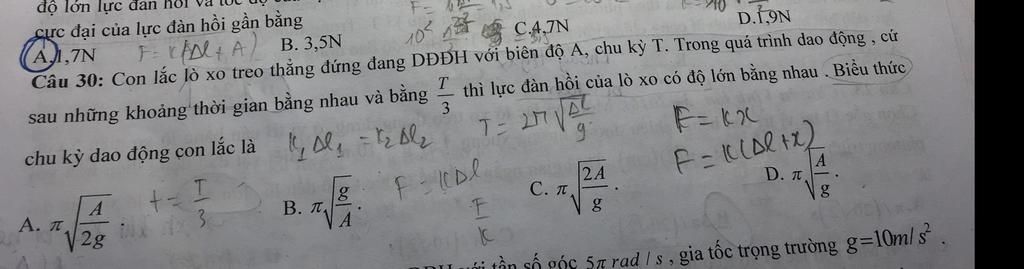 độ lớn lực đàn hồi và tốc độ
cực đại của lực đàn hồi gần bằng
A.1,7N F=K(Δl+A) B. 3,5N C.4,7N D.1,9N
Câu 30: Con lắc lò xo treo thẳng đứng đang DĐĐH với biên độ A, chu kỳ T. Trong quá trình dao động , cứ
sau những khoảng thời gian bằng nhau và bằng T/3 thì lực đàn hồi của lò xo có độ lớn bằng nhau . Biểu thức
chu kỳ dao động con lắc là K₁Δl₁ = K₂Δl₂ T= 2π√(Δl/g) F=Kx
F=K(Δl+x)
A. π√(A/2g) . t= T/3 B. π√(g/A) . F=KΔl C. π√(2A/g) . D. π√(A/g) .
F/K
tần số góc 5π rad / s , gia tốc trọng trường g=10m/s² .